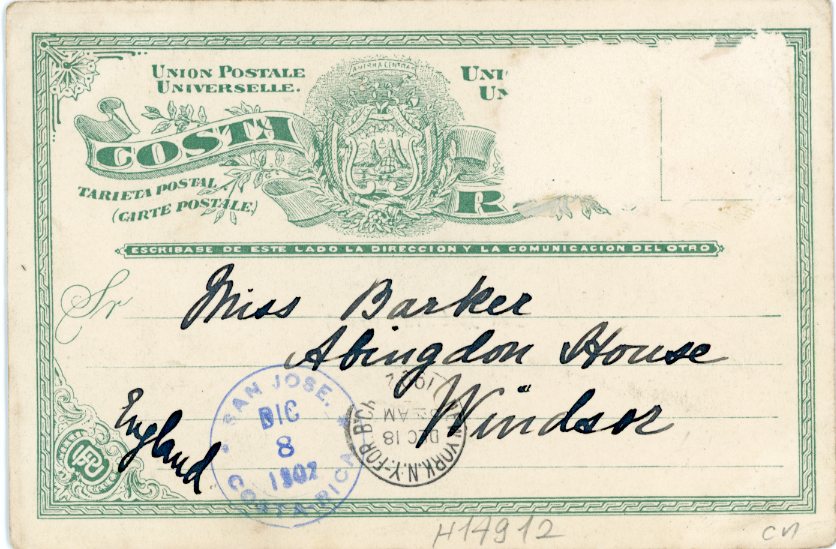 UNION POSTALE
UNIVERSELLE.
AMERICA CENTRAL
UNI
UN
COSTA
R
TARJETA POSTAL
(CARTE POSTALE)
ESCRIBASE DE ESTE LADO LA DIRECCION Y LA COMUNICACION DEL OTRO
Sr
Miss Barker
Abingdon House
Windsor
England
SAN JOSE,
DIC
8
1902
COSTA RICA
NEW YORK, N.Y.-FOR BCH
DEC 18
AM
H14912
cn